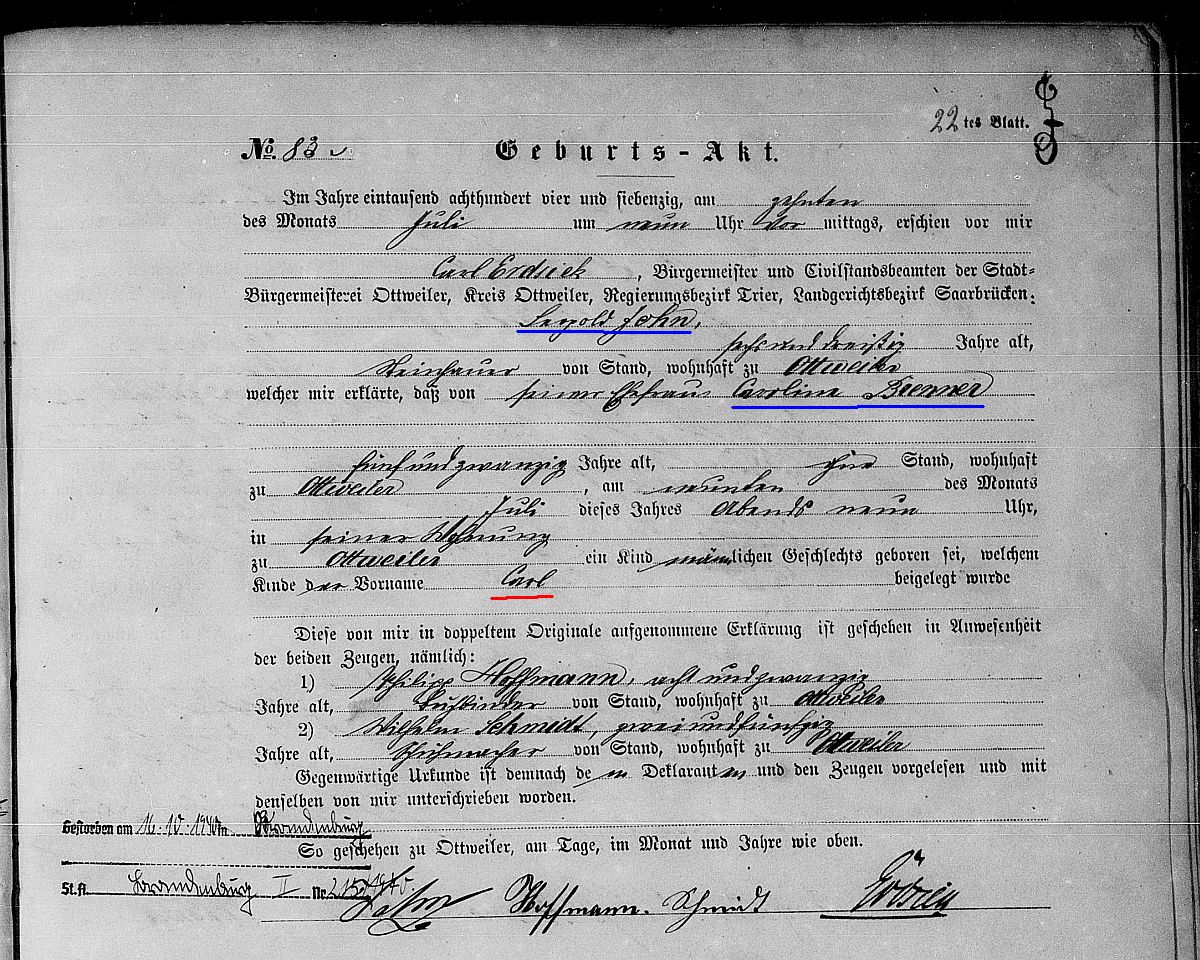 22tes Blatt.
No. 83
Geburts-Akt.
Im Jahre eintausend achthundert vier und siebenzig, am zehnten
des Monats Juli um neun Uhr vor mittags, erschien vor mir
Carl Erdsiek, Bürgermeister und Civilstandsbeamten der Stadt-
Bürgermeisterei Ottweiler, Kreis Ottweiler, Regierungsbezirk Trier, Landgerichtsbezirk Saarbrücken:
Leopold John,
sechs und dreißig Jahre alt,
Steinhauer von Stand, wohnhaft zu Ottweiler
welcher mir erklärte, daß von seiner Ehefrau Carolina Brenner
fünf und zwanzig Jahre alt, ohne Stand, wohnhaft
zu Ottweiler, am neunten des Monats
Juli dieses Jahres Abends neun Uhr,
in seiner Wohnung
zu Ottweiler ein Kind männlichen Geschlechts geboren sei, welchem
Kinde der Vorname Carl beigelegt wurde
Diese von mir in doppeltem Originale aufgenommene Erklärung ist geschehen in Anwesenheit
der beiden Zeugen, nämlich:
1) Philipp Hoffmann, acht und zwanzig
Jahre alt, Buchbinder von Stand, wohnhaft zu Ottweiler
2) Wilhelm Schmidt, zwei und fünfzig
Jahre alt, Schuhmacher von Stand, wohnhaft zu Ottweiler
Gegenwärtige Urkunde ist demnach dem Deklaranten und den Zeugen vorgelesen und mit
denselben von mir unterschrieben worden.
Gestorben am 16.10.1940 in Brandenburg
So geschehen zu Ottweiler, am Tage, im Monat und Jahre wie oben.
St.A. Brandenburg II Nr.
John Hoffmann. Schmidt Erdsiek